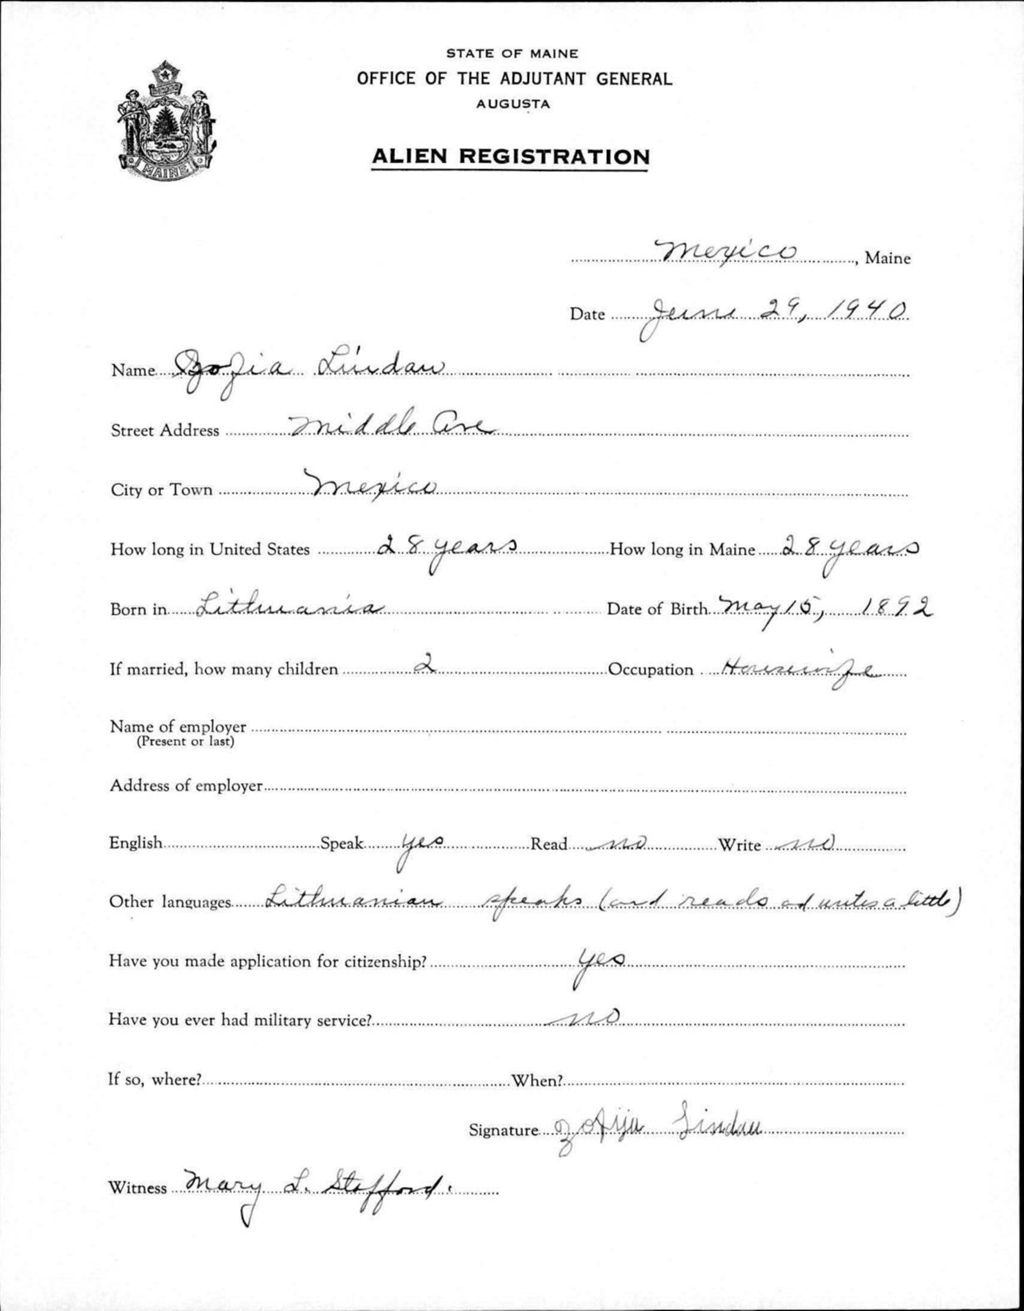 STATE OF MAINE
OFFICE OF THE ADJUTANT GENERAL
AUGUSTA
ALIEN REGISTRATION
MAINE
Mexico, Maine
Date June 29, 1940
Name Zofia Lindau
Street Address Middle Ave
City or Town Mexico
How long in United States 28 years How long in Maine 28 years
Born in Lithuania Date of Birth May 15, 1892
If married, how many children 2 Occupation Housewife
Name of employer
(Present or last)
Address of employer
English Speak yes Read no Write no
Other languages Lithuanian speaks (and reads ad writes a little)
Have you made application for citizenship? yes
Have you ever had military service? no
If so, where? When?
Signature Zofija Lindau
Witness Mary L. Stafford.